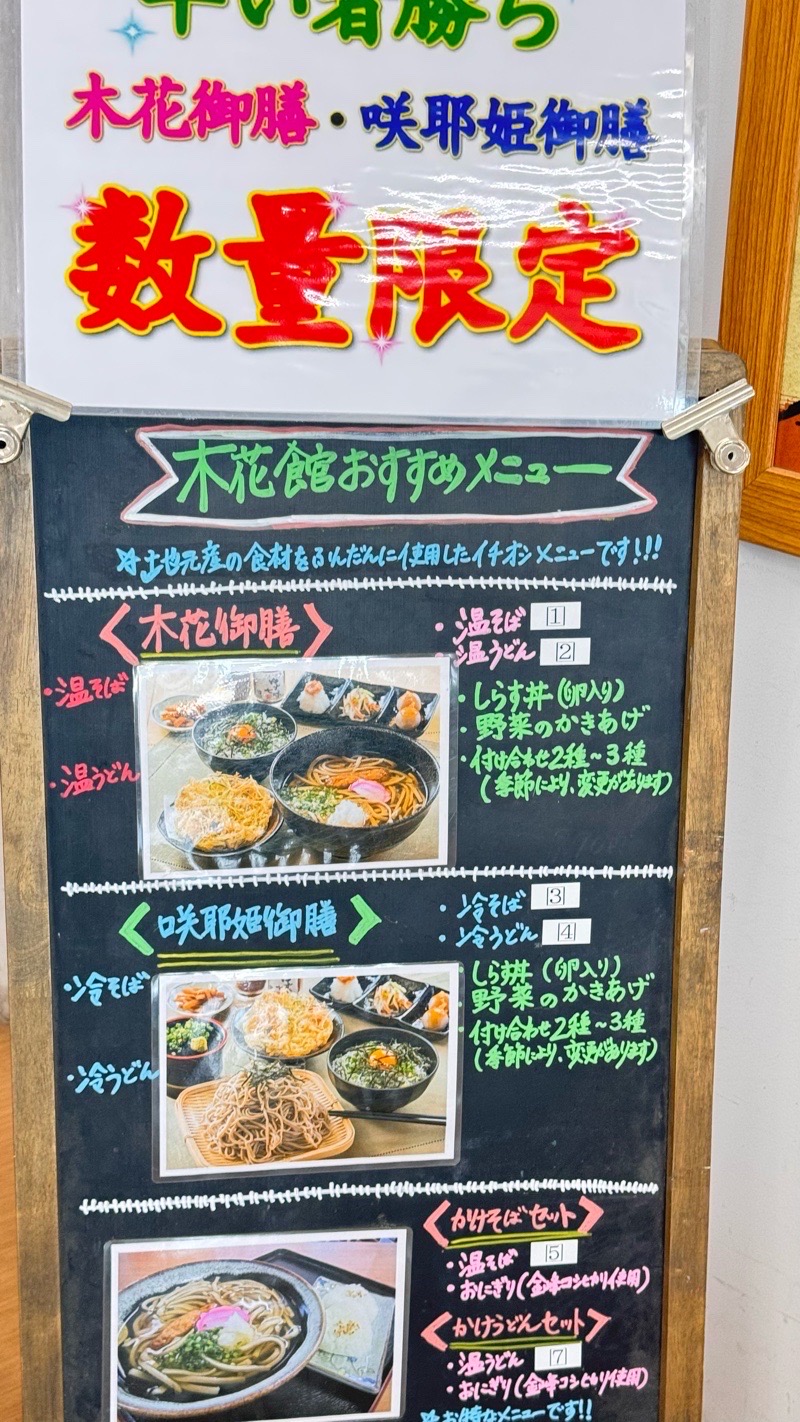 早い者勝ち
木花御膳・咲耶姫御膳
数量限定
木花館おすすめメニュー
☆土地元産の食材をふんだんに使用したイチオシメニューです!!!
〈木花御膳〉
・温そば 1
・温うどん 2
・温そば
・温うどん
・しらす丼(卵入り)
・野菜のかきあげ
・付け合わせ2種~3種
(季節により、変更があります)
〈咲耶姫御膳〉
・冷そば 3
・冷うどん 4
・冷そば
・冷うどん
・しらす丼(卵入り)
・野菜のかきあげ
・付け合わせ2種~3種
(季節により、変更があります)
〈かけそばセット〉
・温そば 5
・おにぎり(金峰コシヒカリ使用)
〈かけうどんセット〉
・温うどん 7
・おにぎり(金峰コシヒカリ使用)
☆お得なメニューです!!